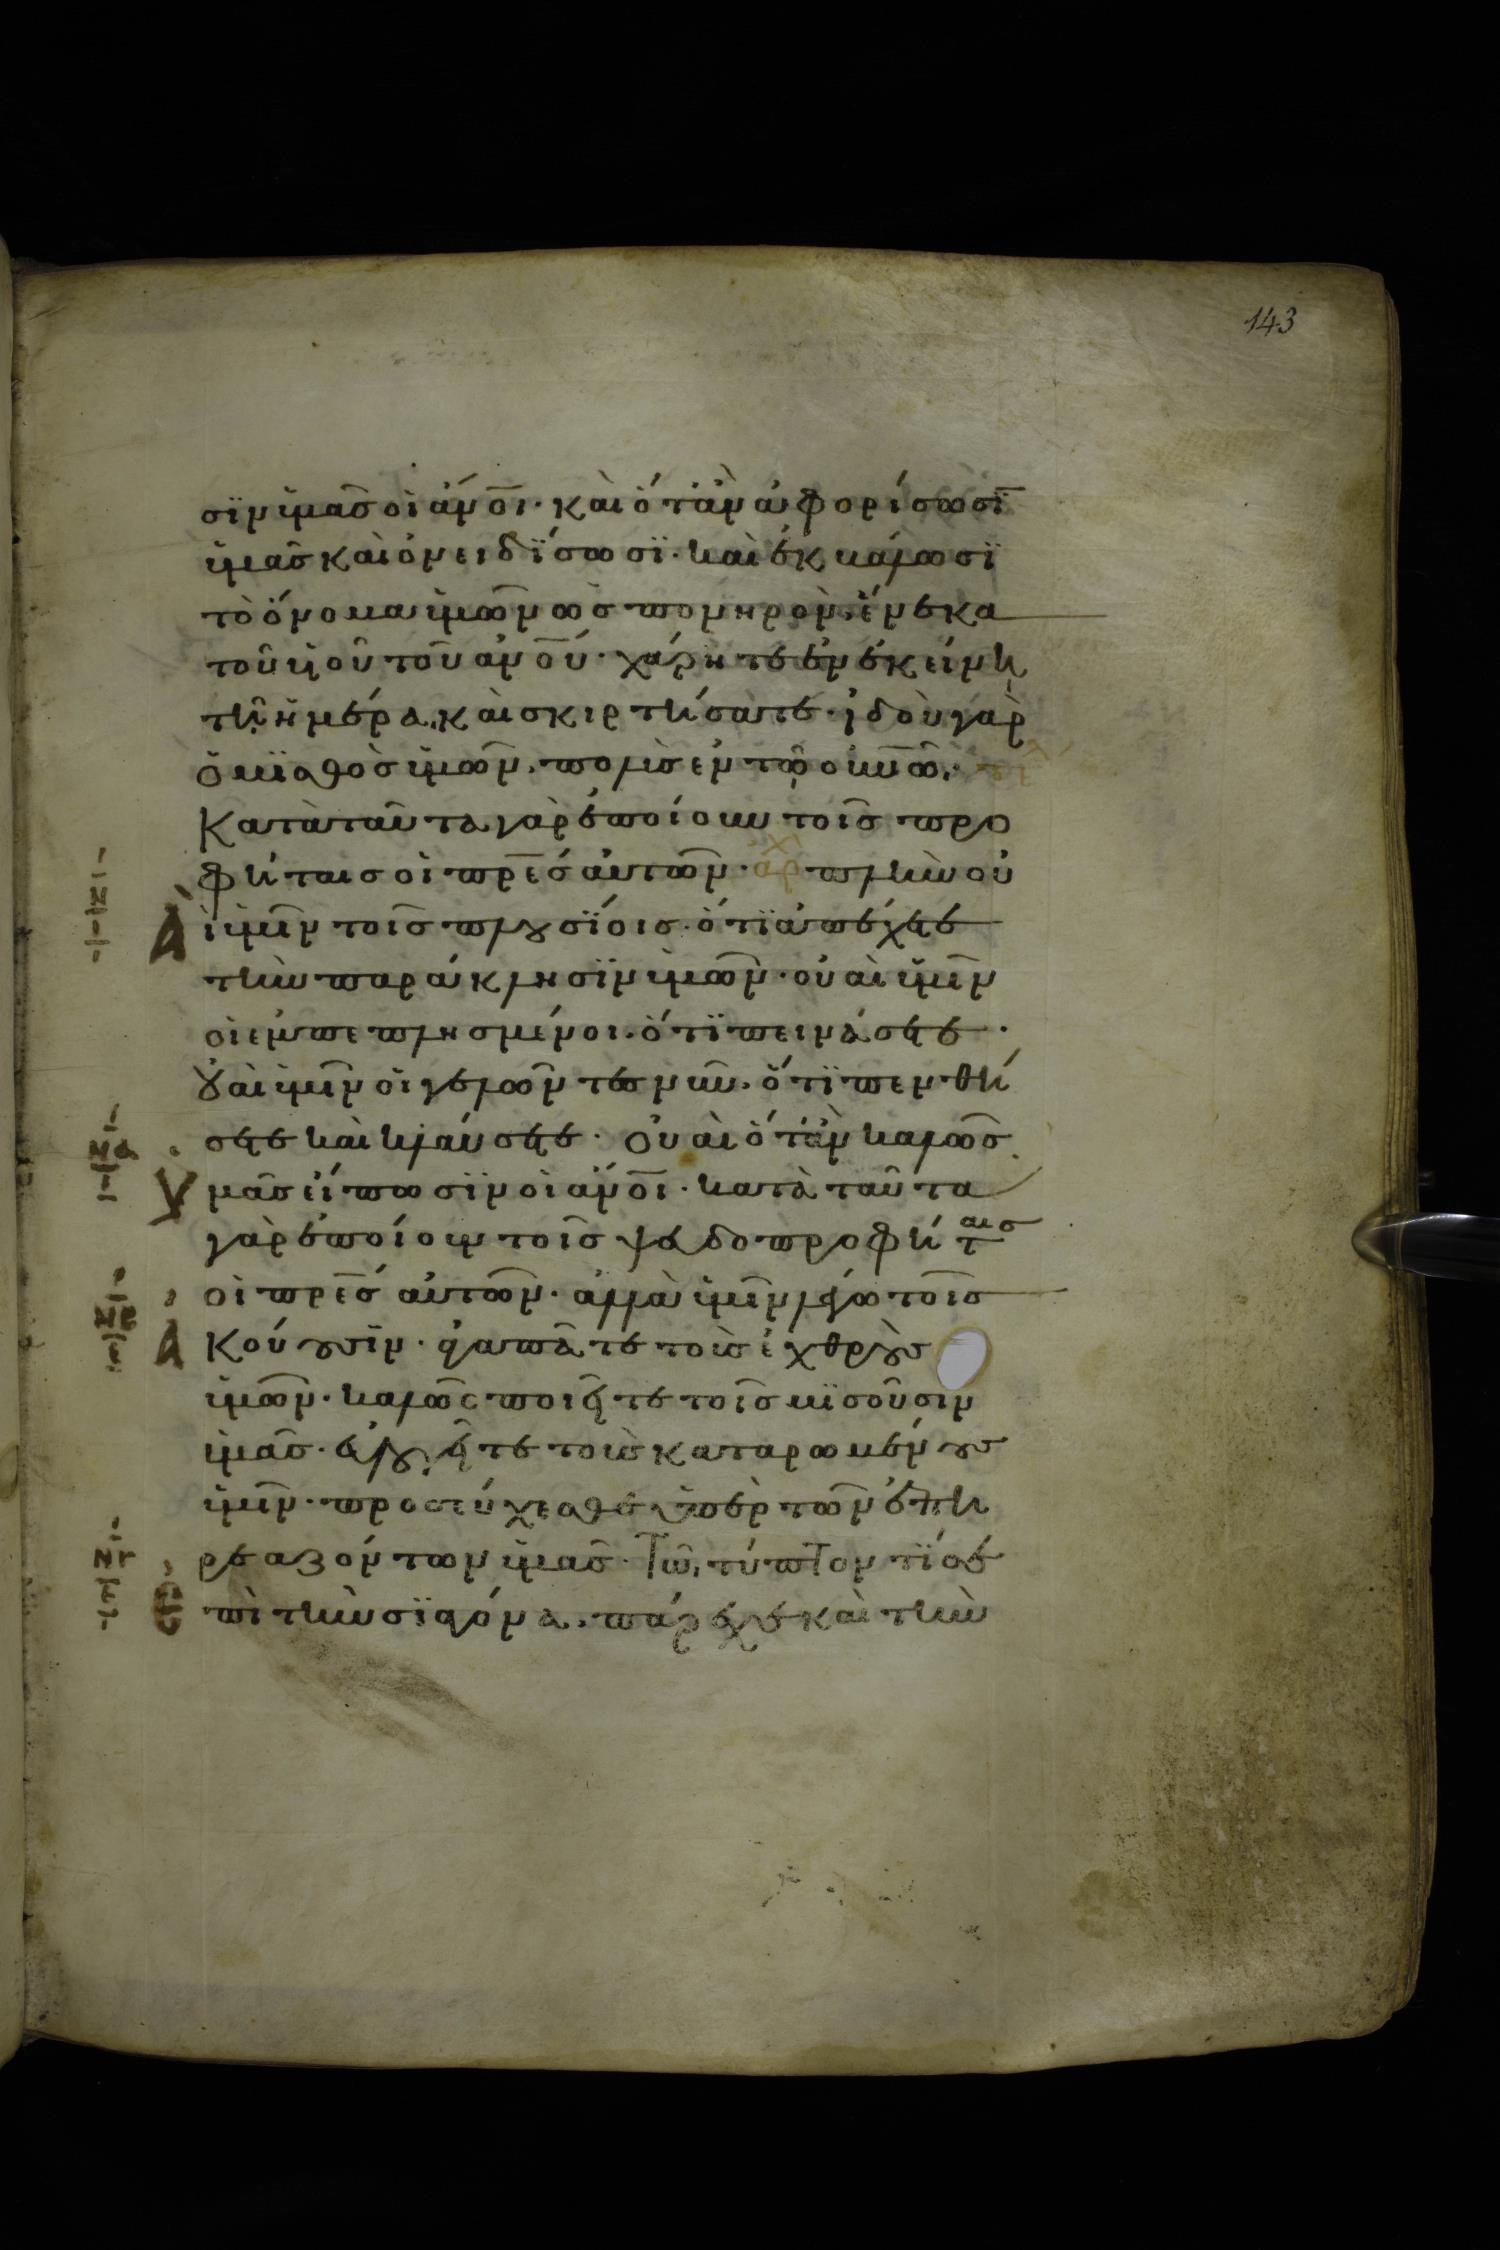 143
σϊν ὑμᾶς οἱ ἄν̅ο̅ι̅· καὶ ὅταν ἀφορίσωσϊ
ὑμᾶς καὶ ὀνειδΐσωσϊ· καὶ ἐκβάλωσϊ
τὸ ὄνομα ὑμῶν ὡς πονηρὸν, ἕνεκα
τοῦ υἱοῦ τοῦ ἀν̅ο̅ύ̅· χάρητε ἐν ἐκείνῃ
τῇ ἡμέρα, καὶ σκιρτήσατε· ἰδοὺ γὰρ
ὁ μϊσθὸς ὑμῶν, πολὺς ἐν τῷ ου̅ν̅ῶ̅·
Κατὰ ταῦτα γὰρ ἐποίουν τοῖς προ
φήταις οἱ πρ̅ε̅ς̅ αὐτῶν· ἀρχ πλὴν οὐ
Αὶ ὑμῖν τοῖς πλουσΐοις· ὅτϊ ἀπέχετε
τὴν παράκλησϊν ὑμῶν· οὐαὶ ὑμῖν
οἱ ἐμπεπλησμένοι· ὅτϊ πεινάσετε·
Οὐαὶ ὑμῖν οἱ γελῶντες νῦν, ὅτϊ πενθή
σετε καὶ κλαύσετε· Οὐαὶ ὅταν καλῶς
Ὑμᾶς εἴπωσϊν οἱ ἄν̅ο̅ι̅· κατὰ ταῦτα
γὰρ ἐποίουν τοῖς ψευδοπροφήταις
οἱ πρ̅ε̅ς̅ αὐτῶν· ἀλλὰ ὑμῖν λέγω τοῖς
Ἀκούουσϊν· ἀγαπᾶτε τοὺς ἐχθροὺς
ὑμῶν· καλῶς ποιεῖτε τοῖς μϊσοῦσιν
ὑμᾶς· εὐλογεῖτε τοὺς καταρωμένους
ὑμῖν· προσεύχεσθε ὑπὲρ τῶν ἐπη
ρεαζόντων ὑμᾶς· Τῶ, τύπτοντϊ σε
Ἐπὶ τὴν σϊαγόνα, πάρεχε καὶ τὴν